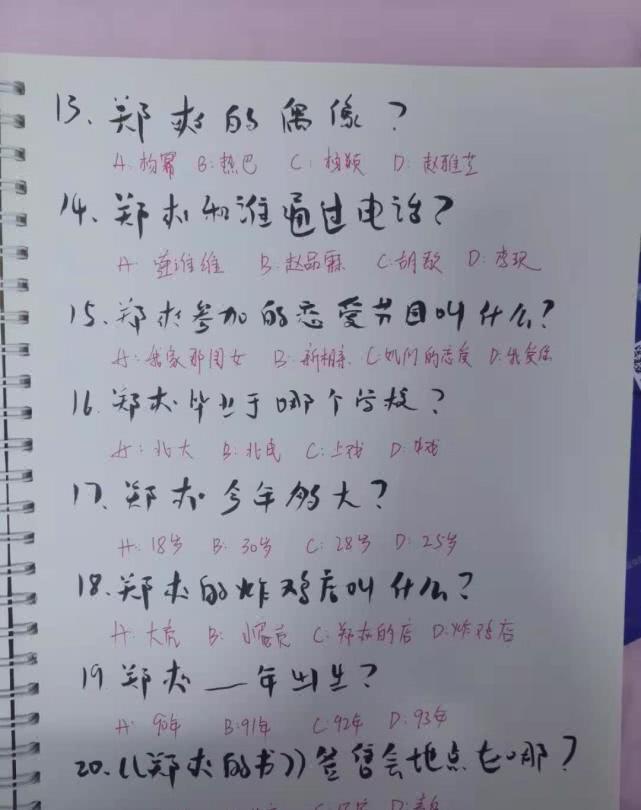 13、郑爽的偶像？
A：杨幂 B：热巴 C：杨颖 D：赵雅芝
14、郑爽和谁通过电话？
A： 维维 B：赵品霖 C：胡歌 D：李现
15、郑爽参加的恋爱节目叫什么？
A：我家那闺女 B：新相亲 C：她们的恋爱 D：我爱
16、郑爽毕业于哪个学校？
A：北大 B：北电 C：上戏 D：中戏
17、郑爽今年够大？
A：18岁 B：30岁 C：28岁 D：25岁
18、郑爽的炸鸡店叫什么？
A：大虎 B：小 C：郑爽的店 D：炸鸡店
19 郑爽__年出生？
A：90年 B：91年 C：92年 D：93年
20.《《郑爽的书》》签售会地点在哪？
D：青岛